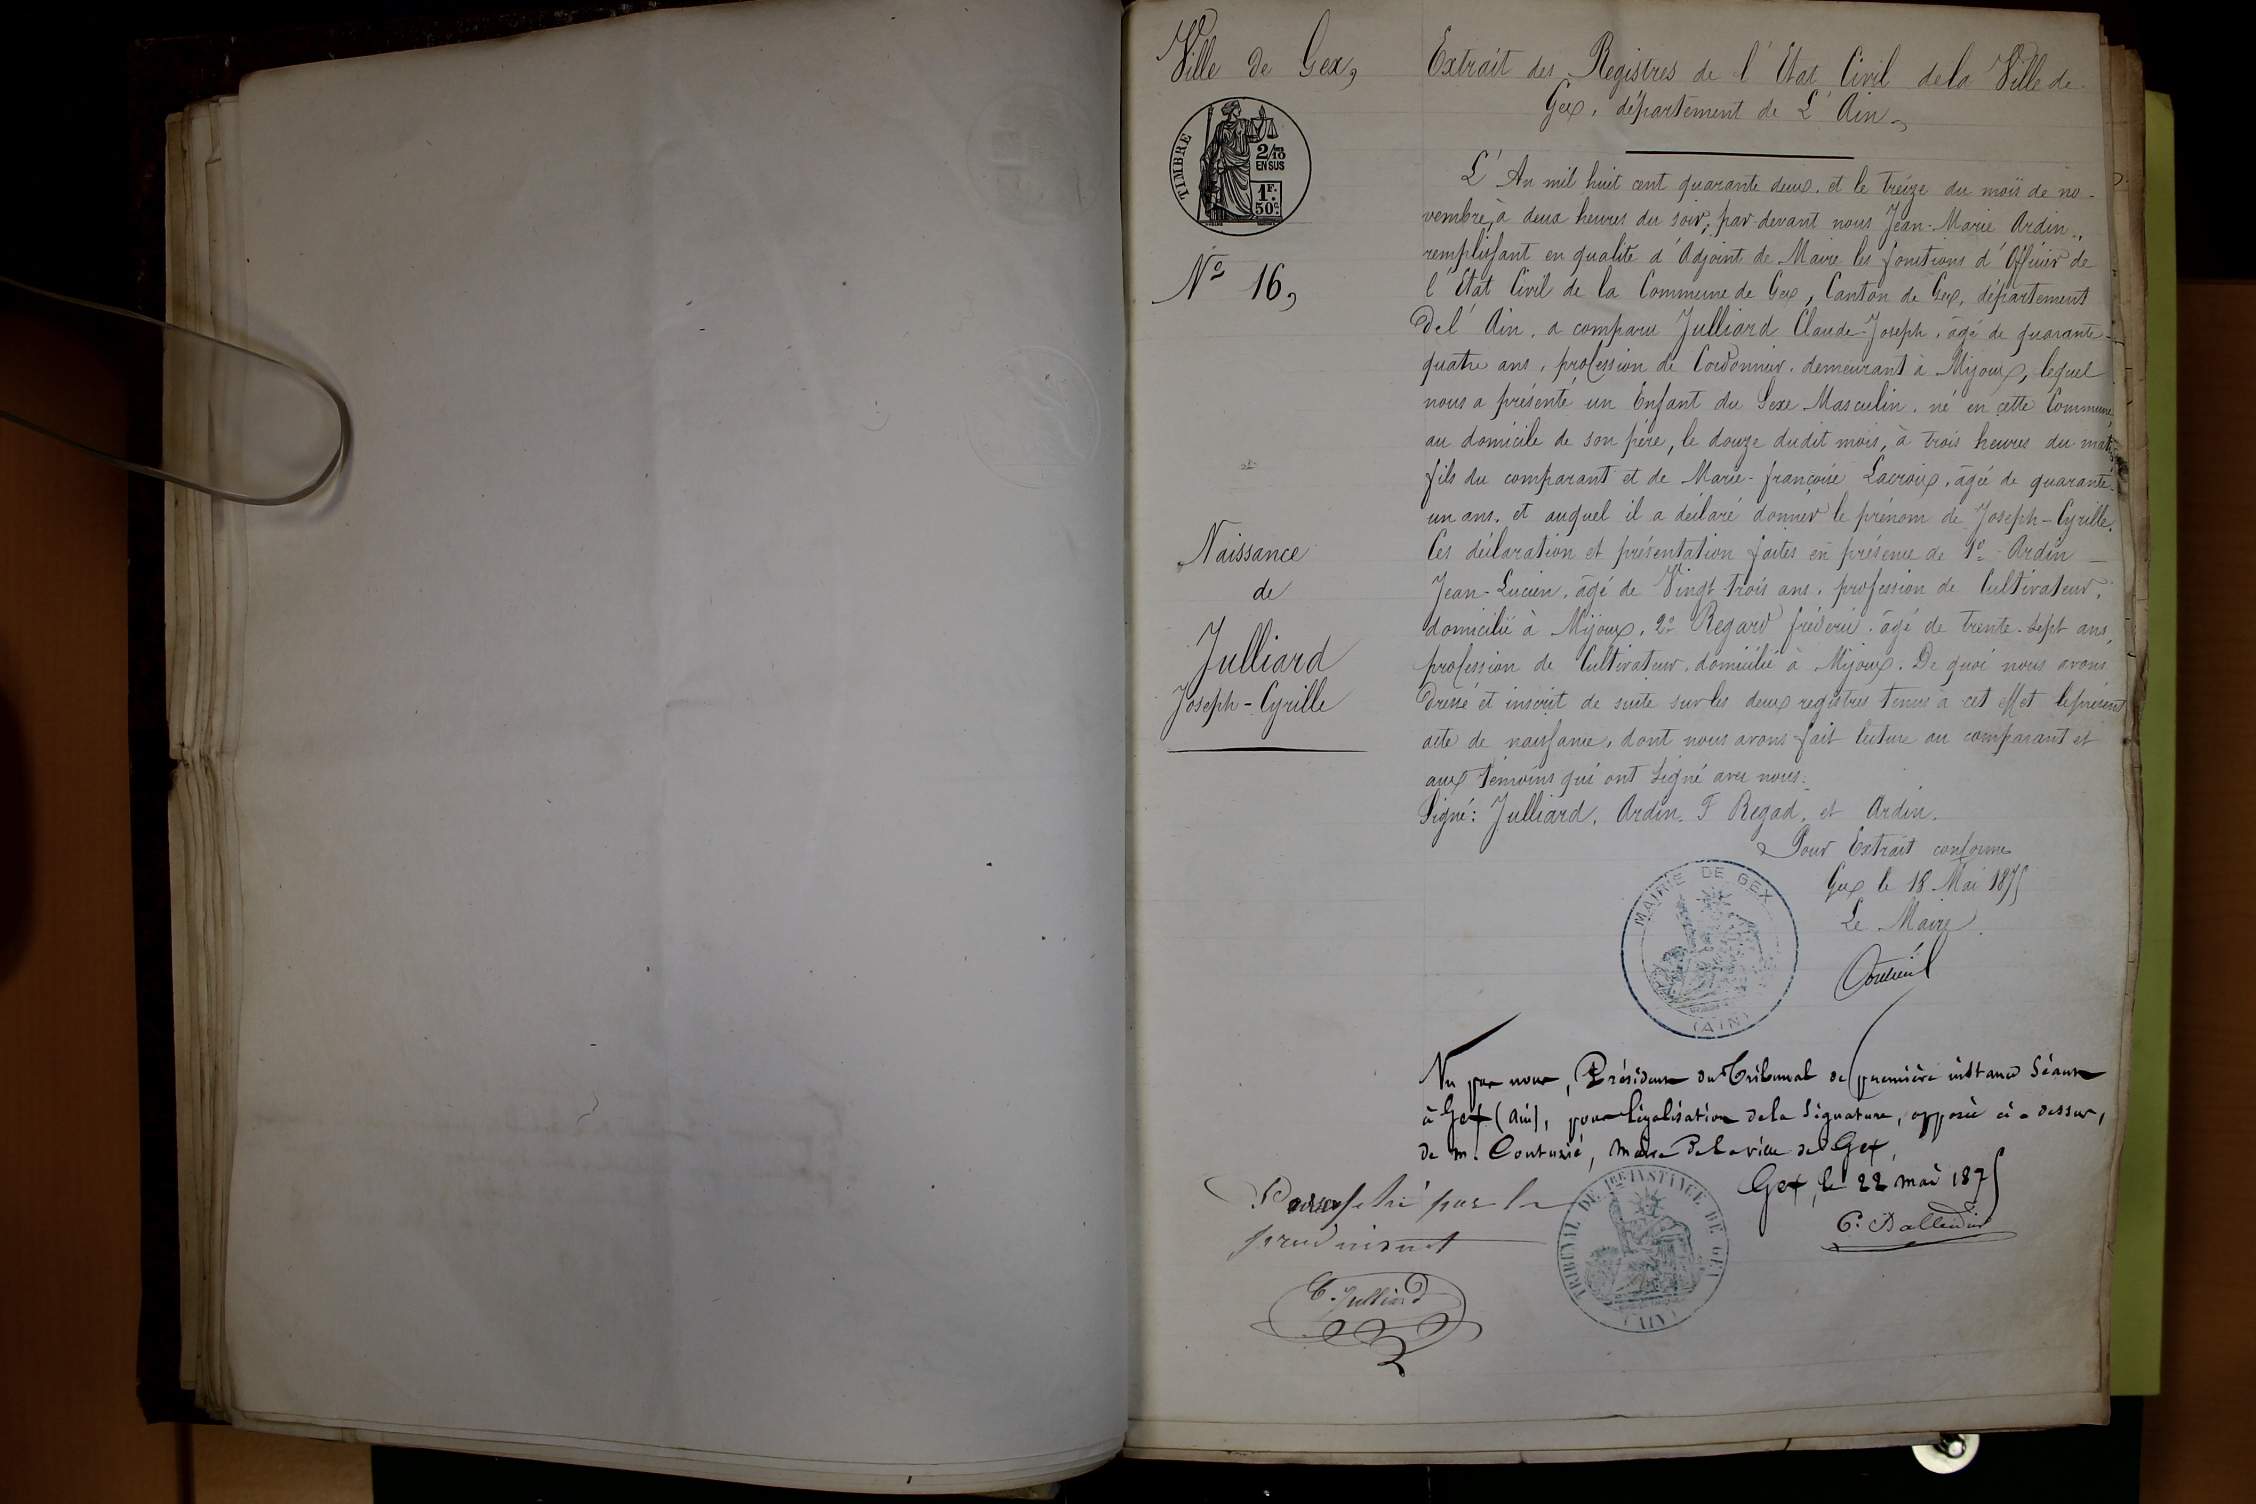 Ville de Gex,
TIMBRE
2/10
EN SUS
1F.
50c.
No 16,
Naissance
de
Julliard
Joseph-Cyrille
Extrait des Registres de l'Etat Civil de la Ville de
Gex, département de L'Ain,
L'An mil huit cent quarante deux, et le treize du mois de no-
vembre, à deux heures du soir, par devant nous Jean-Marie Ardin,
remplissant en qualité d'Adjoint de Maire les fonctions d'Officier de
l'Etat Civil de la Commune de Gex, Canton de Gex, département
de l'Ain, a comparu Julliard Claude-Joseph, âgé de quarante-
quatre ans, profession de Cordonnier, demeurant à Mijoux, lequel
nous a présenté un Enfant du Sexe Masculin, né en cette Commune
au domicile de son père, le douze dudit mois, à trois heures du matin,
fils du comparant et de Marie-françoise Lacroix, âgée de quarante-
un ans, et auquel il a déclaré donner le prénom de Joseph-Cyrille.
Ces déclaration et présentation faites en présence de 1o Ardin
Jean-Lucien, âgé de Vingt trois ans, profession de Cultivateur,
domicilié à Mijoux, 2o Regard fréderic, âgé de trente-sept ans,
profession de Cultivateur, domicilié à Mijoux. De quoi nous avons
dressé et inscrit de suite sur les deux registres tenus à cet effet le présent
acte de naissance, dont nous avons fait lecture au comparant et
aux témoins qui ont signé avec nous.
Signé: Julliard, Ardin, F Regad, et Ardin.
Pour Extrait conforme
Gex le 18 Mai 1875
Le Maire
MAIRIE DE GEX
(AIN)
Vu par nous, Président du Tribunal de première instance séant
à Gex (Ain), pour légalisation de la signature, apposée ci-dessus,
de m. , Maire de la ville de Gex,
Gex, le 22 mai 1875
TRIBUNAL DE 1RE INSTANCE DE GEX
(AIN)
par le
C. Julliard